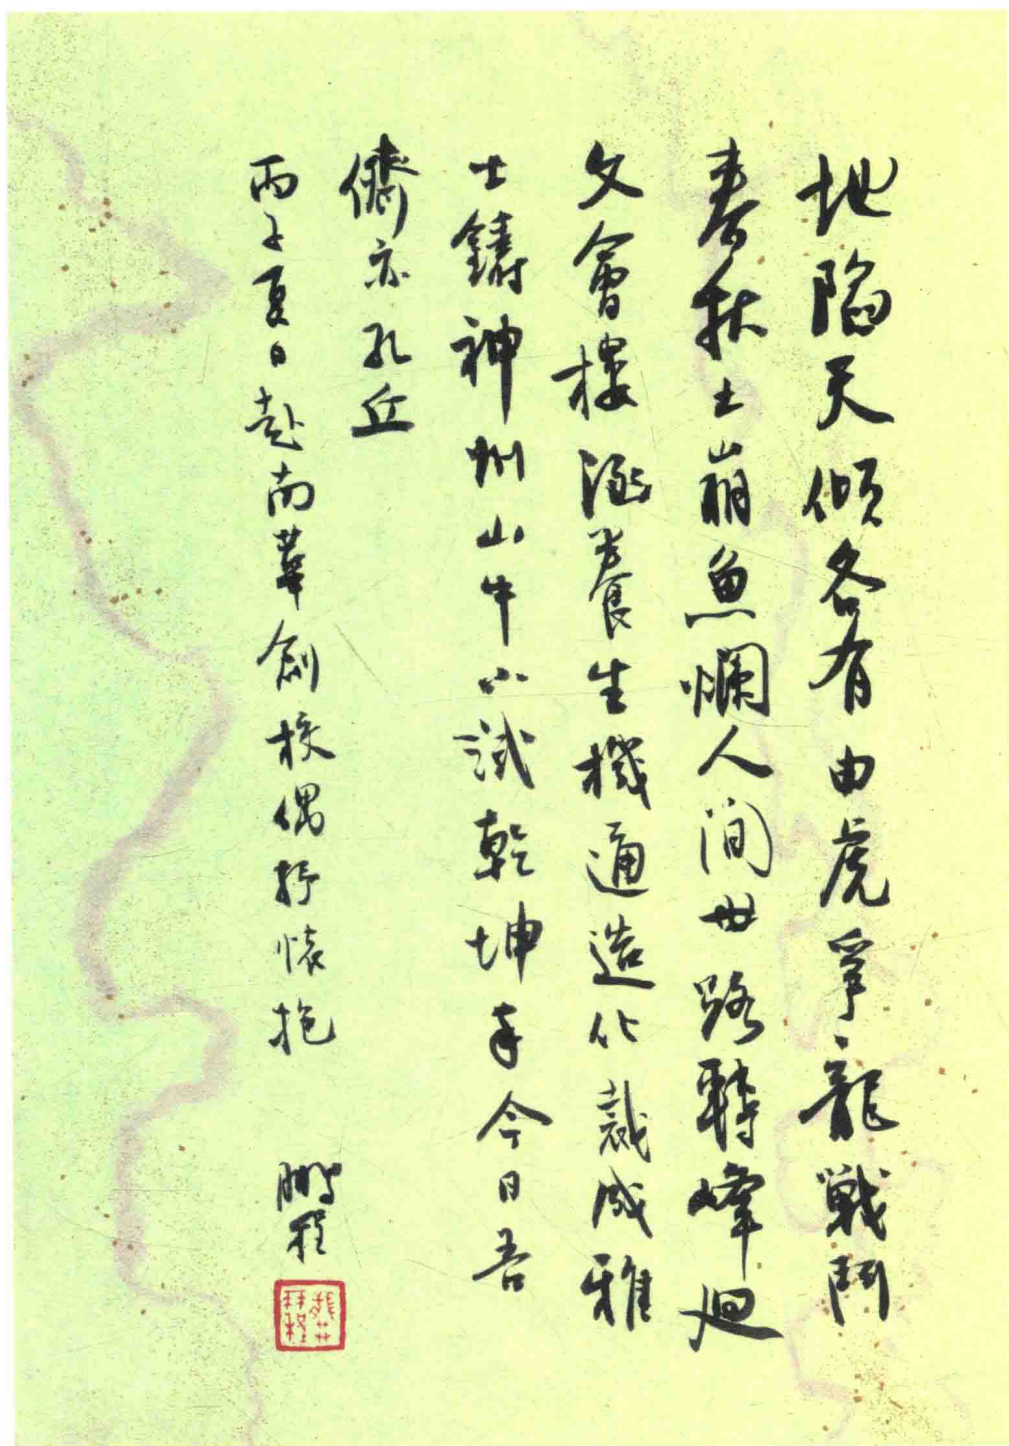 地陷天傾各有由虎爭龍戰鬥
春秋土崩魚爛人間世路轉峰迴
文會樓涵養生機通造化裁成雅
士鑄神州山中小試乾坤手今日吾
儕亦孔丘
丙子夏日赴南華創校偶抒懷抱
鵬程